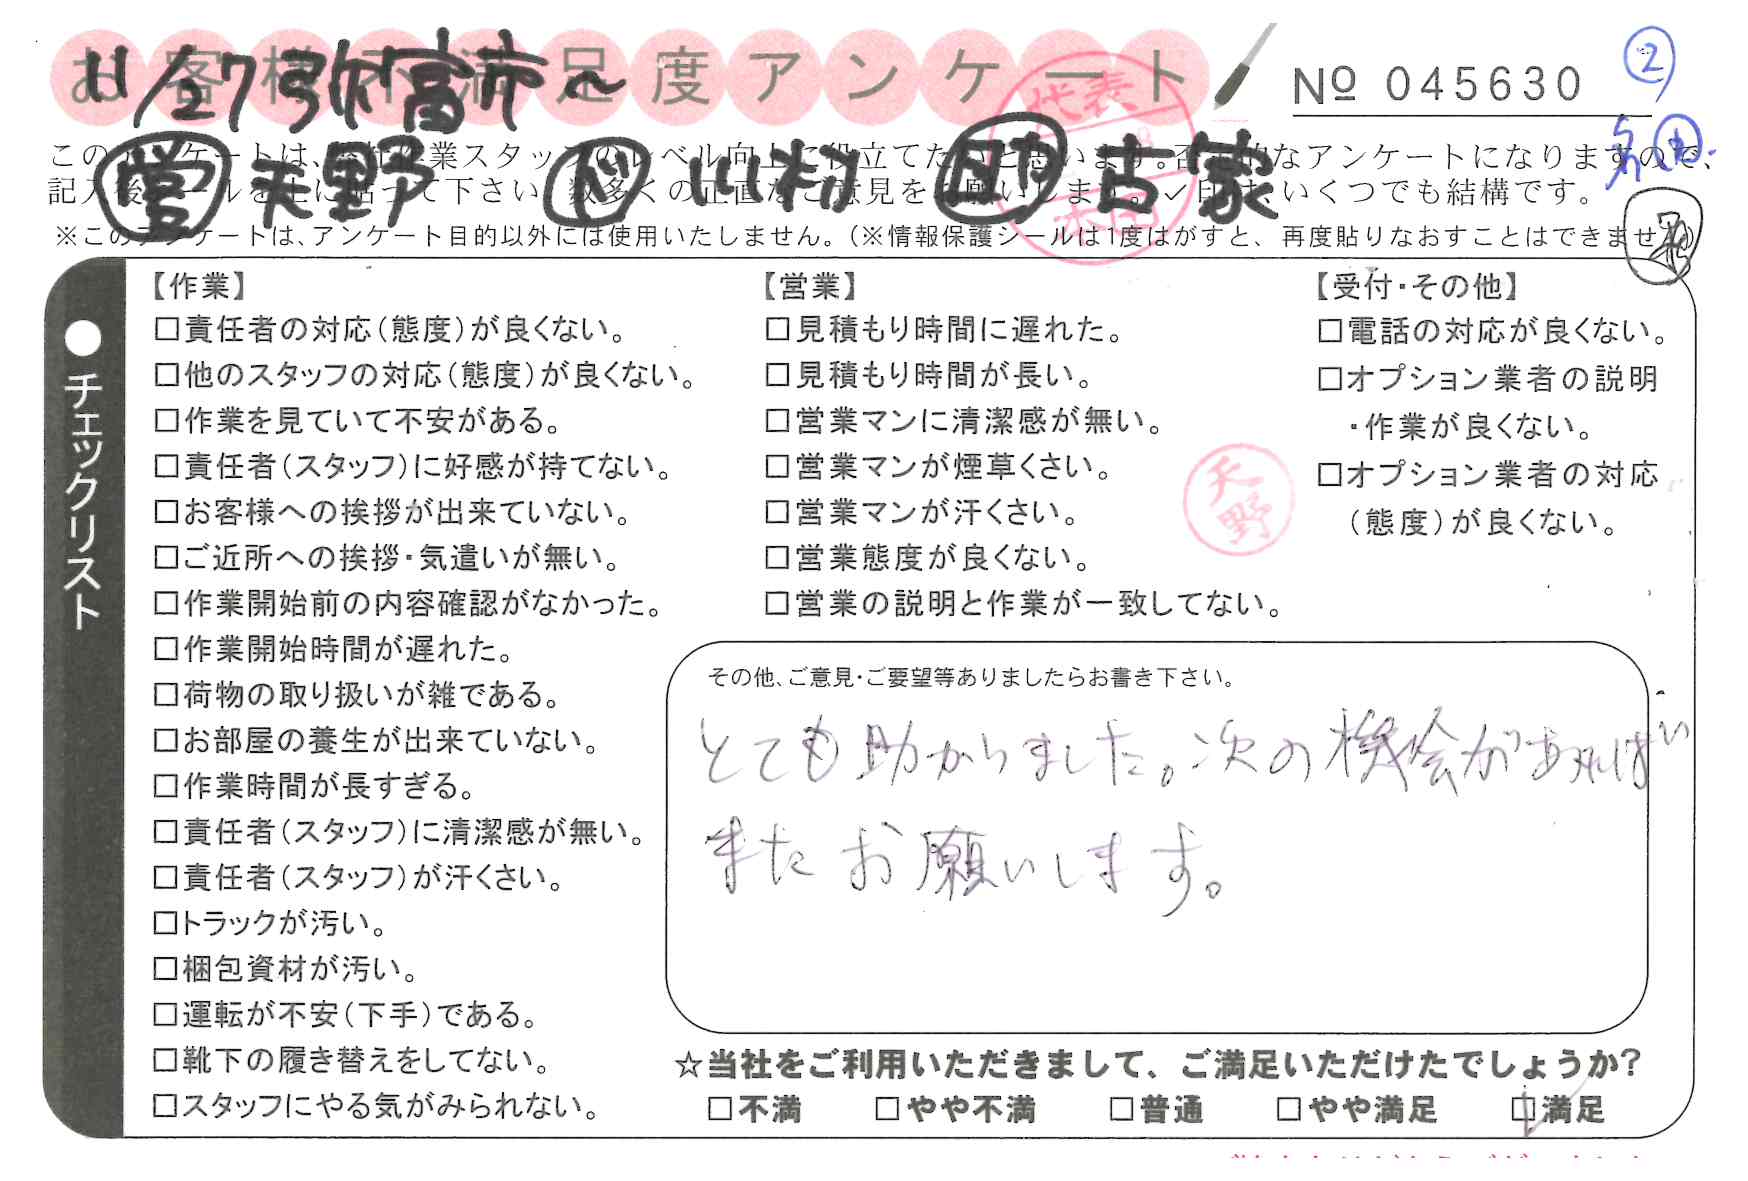 お客様不満足度アンケート
11/27 弥富市～
№ 045630
②
このアンケートは、弊社作業スタッフのレベル向上に役立てたいと思います。否定的なアンケートになりますので、
営 天野 川村 古家
記入後シールを上に貼って下さい。数多くの正直なご意見をお願いします。✓印は、いくつでも結構です。
※このアンケートは、アンケート目的以外には使用いたしません。（※情報保護シールは1度はがすと、再度貼りなおすことはできません。）
代表
本田
●チェックリスト
【作業】
□責任者の対応（態度）が良くない。
□他のスタッフの対応（態度）が良くない。
□作業を見ていて不安がある。
□責任者（スタッフ）に好感が持てない。
□お客様への挨拶が出来ていない。
□ご近所への挨拶・気遣いが無い。
□作業開始前の内容確認がなかった。
□作業開始時間が遅れた。
□荷物の取り扱いが雑である。
□お部屋の養生が出来ていない。
□作業時間が長すぎる。
□責任者（スタッフ）に清潔感が無い。
□責任者（スタッフ）が汗くさい。
□トラックが汚い。
□梱包資材が汚い。
□運転が不安（下手）である。
□靴下の履き替えをしてない。
□スタッフにやる気がみられない。
【営業】
□見積もり時間に遅れた。
□見積もり時間が長い。
□営業マンに清潔感が無い。
□営業マンが煙草くさい。
□営業マンが汗くさい。
□営業態度が良くない。
□営業の説明と作業が一致してない。
天野
【受付・その他】
□電話の対応が良くない。
□オプション業者の説明
・作業が良くない。
□オプション業者の対応
（態度）が良くない。
その他、ご意見・ご要望等ありましたらお書き下さい。
とても助かりました。次の機会があれば
またお願いします。
☆当社をご利用いただきまして、ご満足いただけたでしょうか？
□不満 □やや不満 □普通 □やや満足 □満足